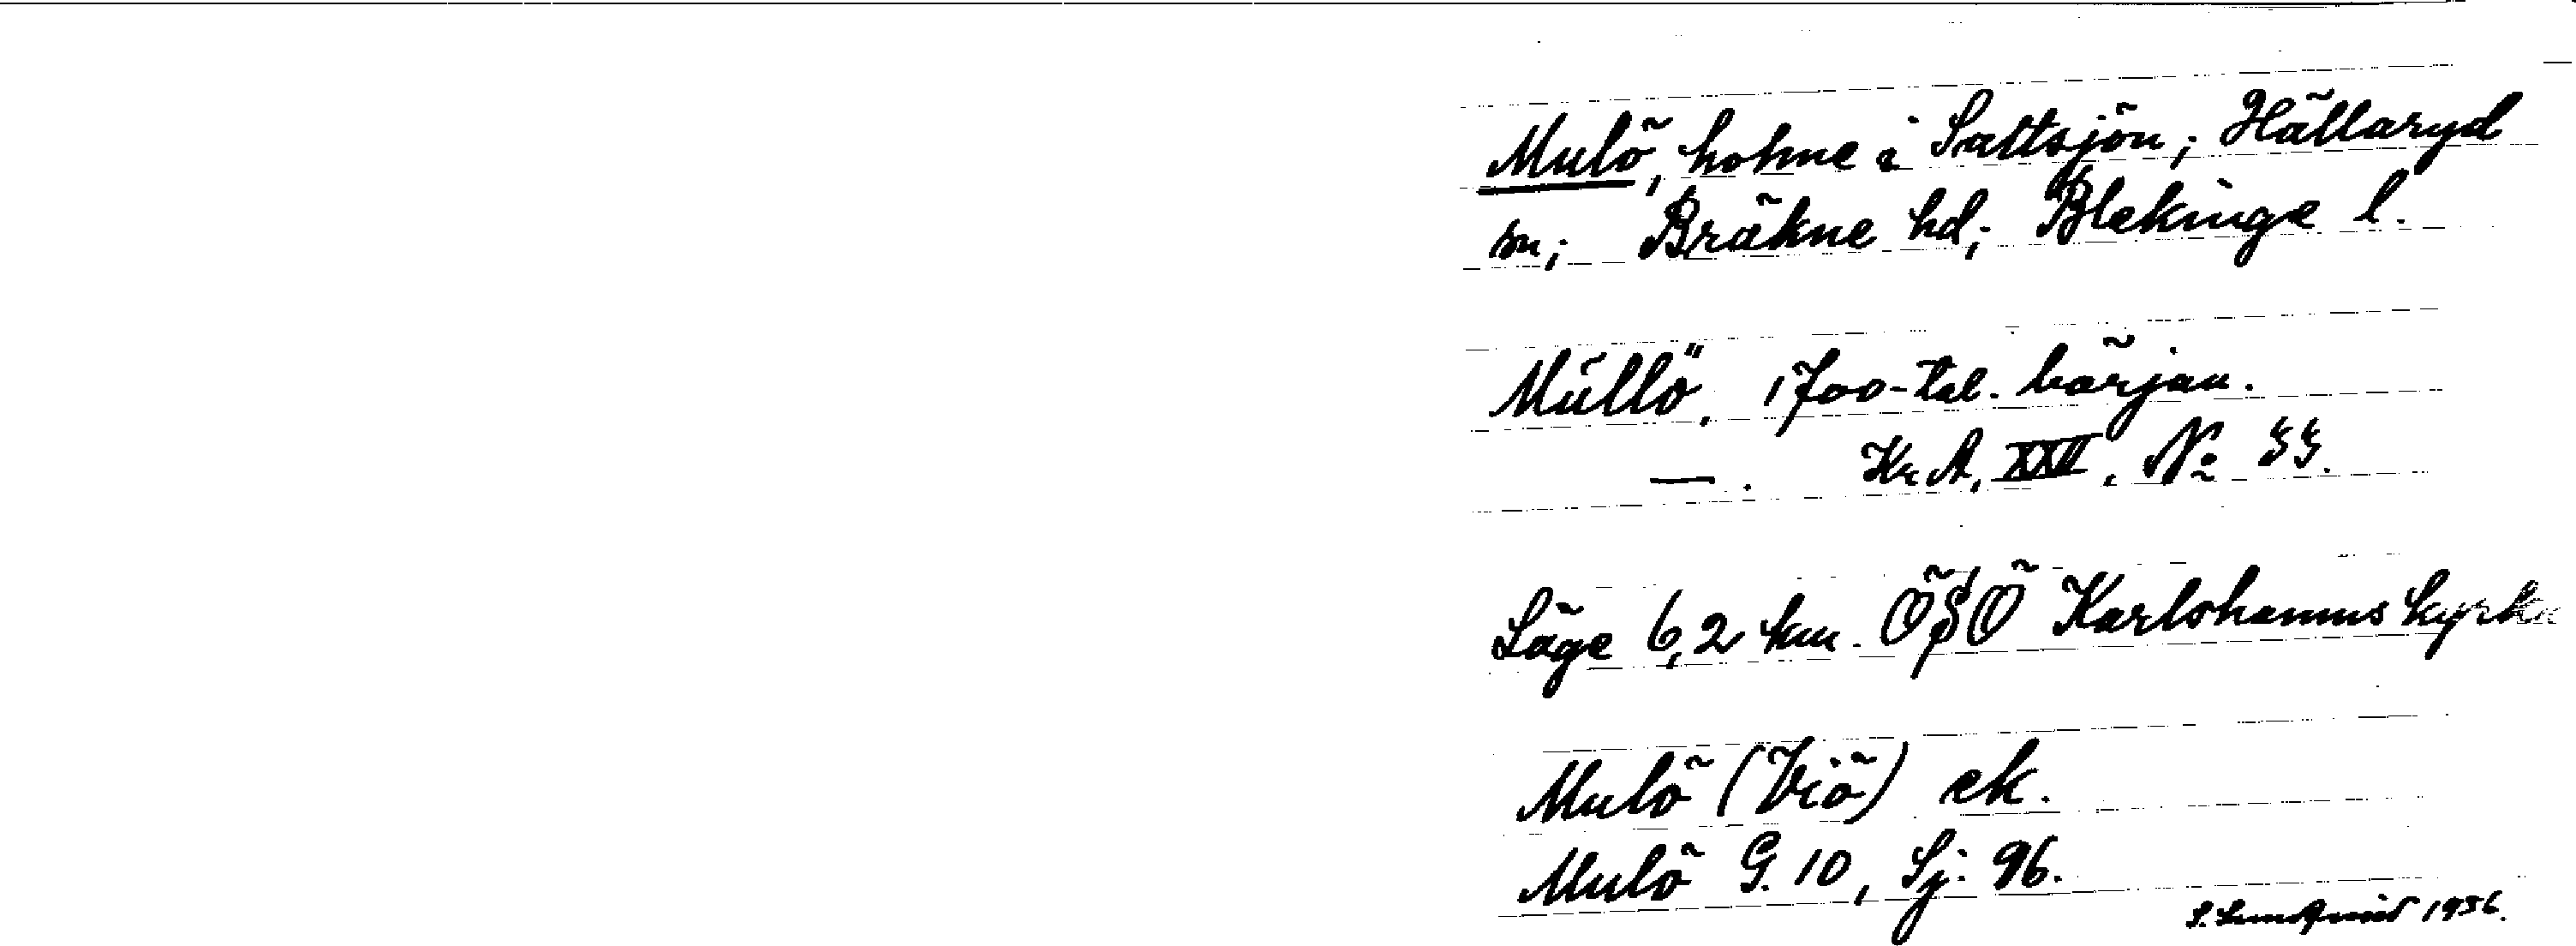 Mulö, holme i Saltsjön; Hällaryd
sn; Bräkne hd; Blekinge l.
Mŭllö. 1700-tal. början.
—. Kr. A. XXII. № 55.
Läge 6,2 km. ÖSÖ Karlshamns kyrka
Mulö (Viö) ek.
Mulö G. 10, Sj. 96.
S. Lundquist 1956.